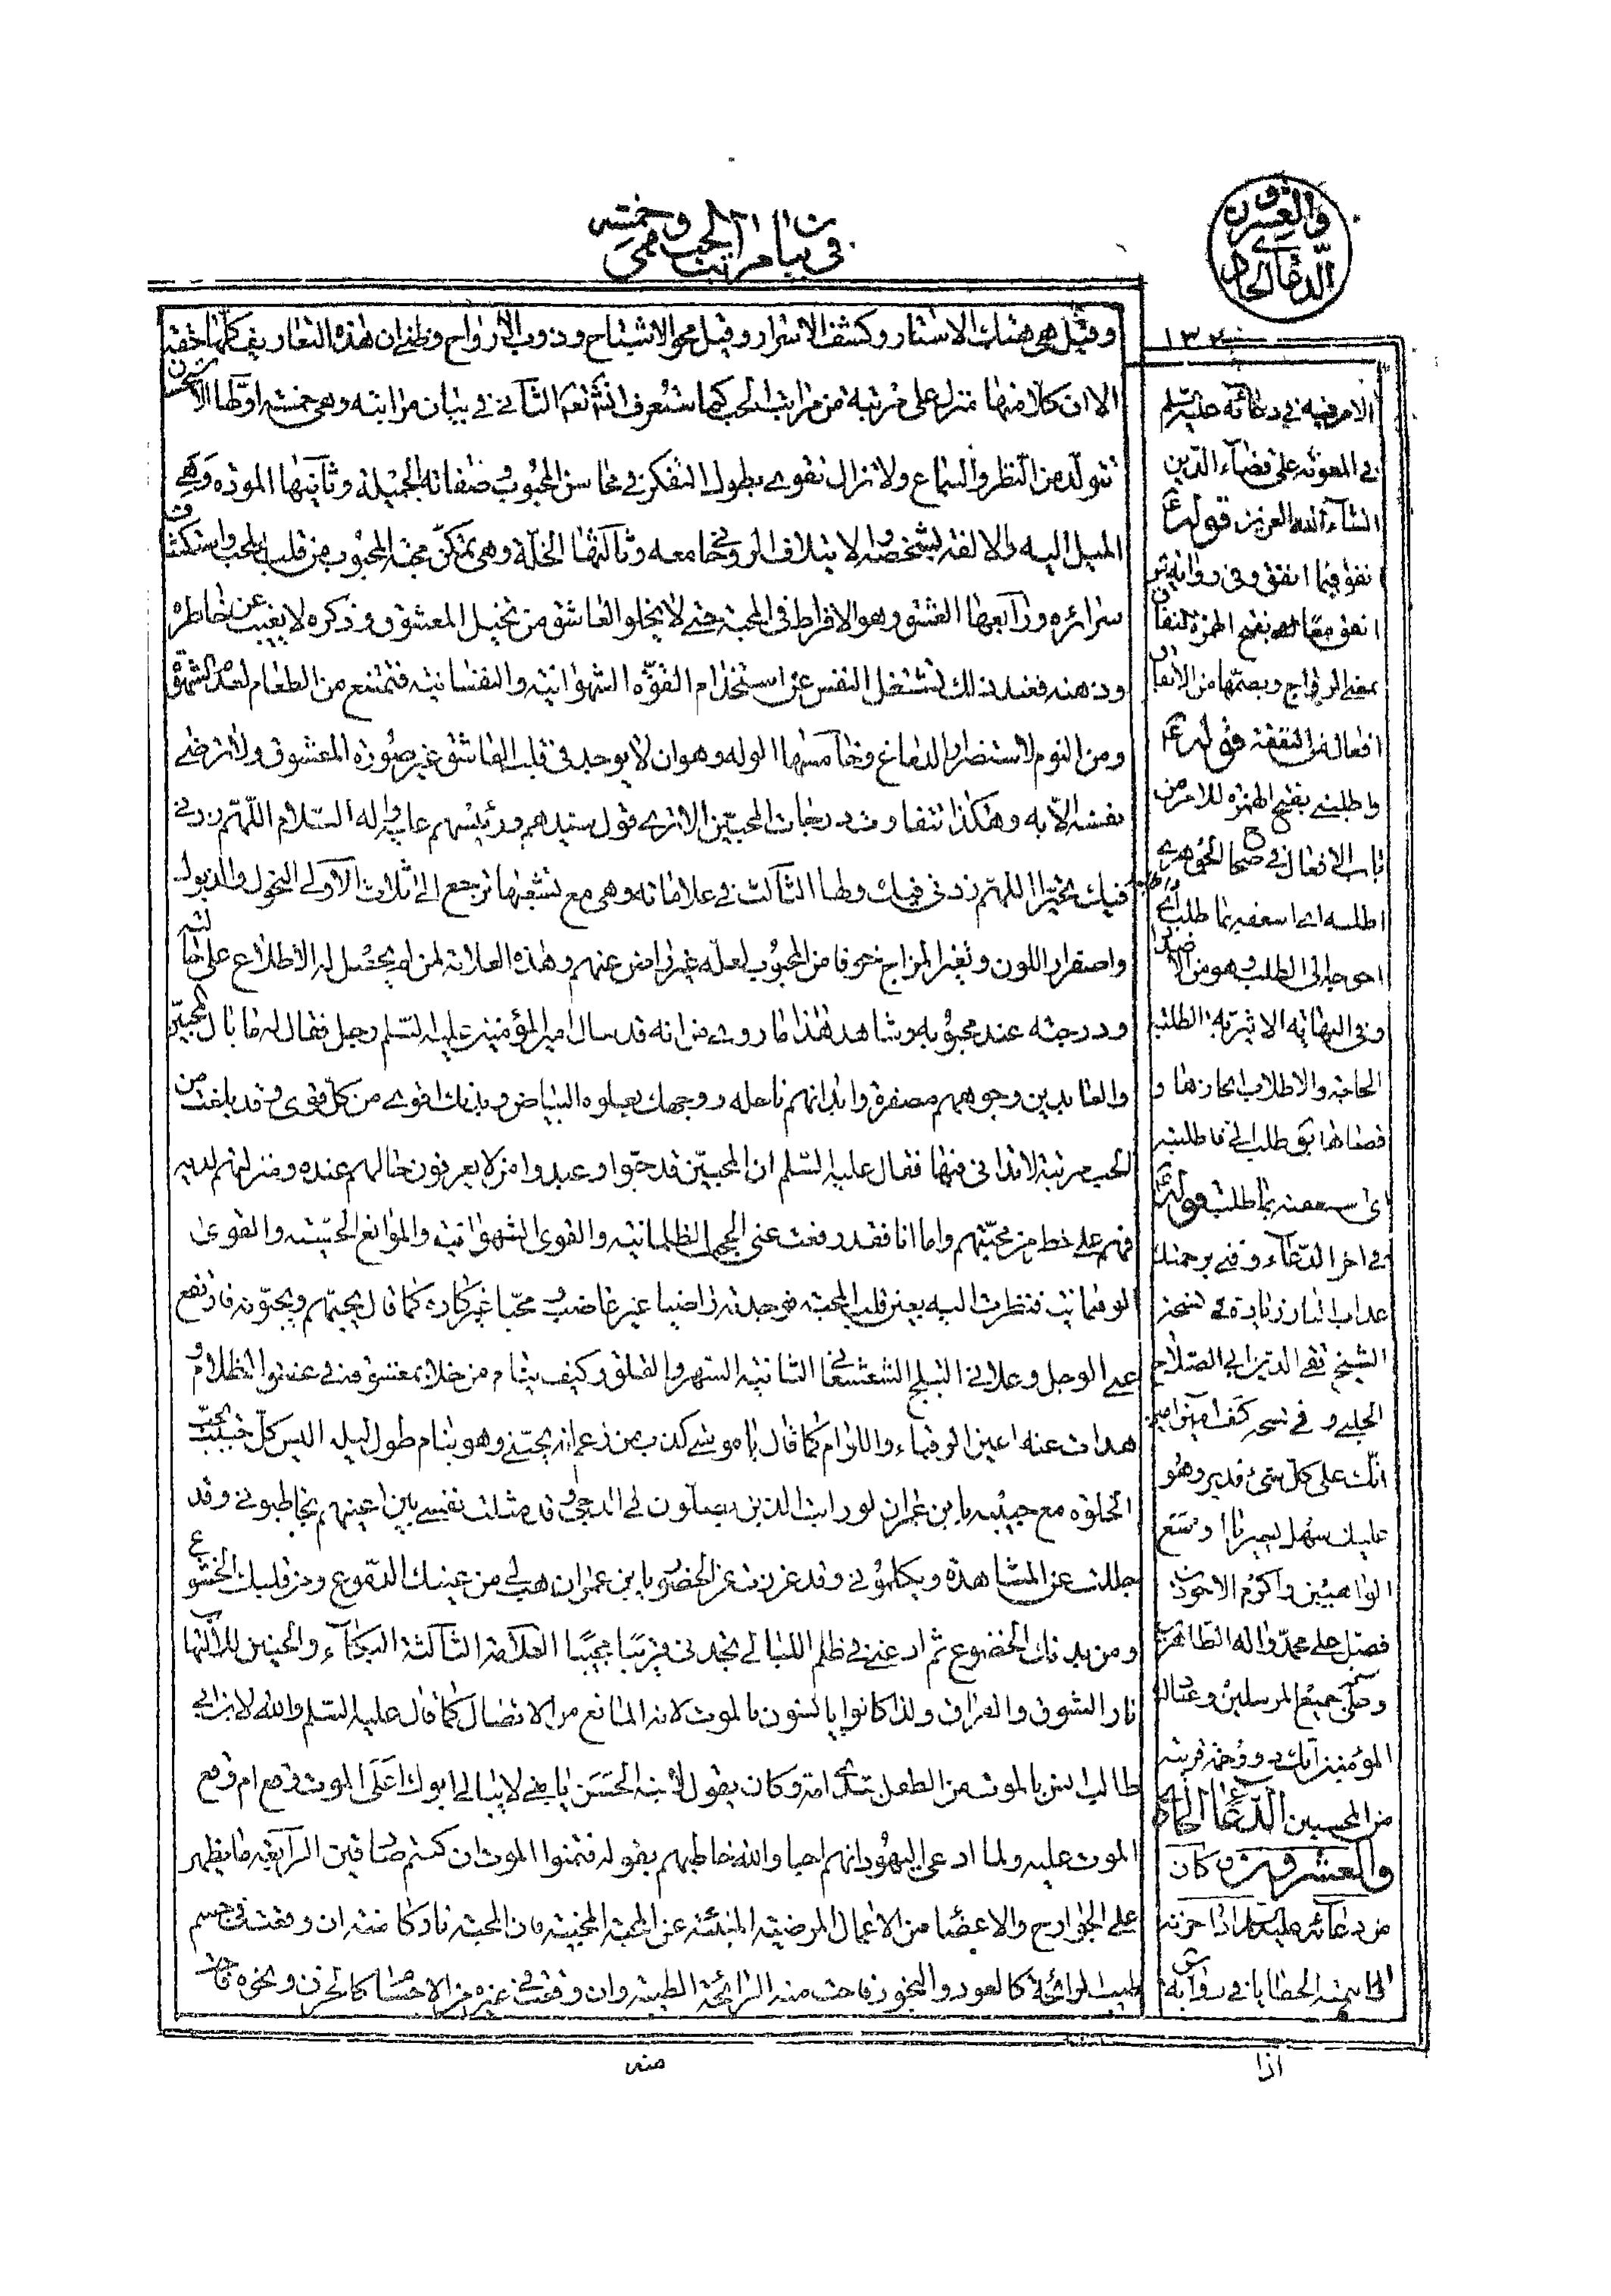 في بيان مراتب الحب وهي خمسة
والعشرون
الدعاء الحادي
١٣٢
وقيل هي هتك الاستار وكشف الاسرار وقيل محو الاشباح وذوب الارواح وظني ان هذه التعاريف كلها حقة
الا ان كلا منها منزل على مرتبة من مراتب الحب كما ستعرف انشآء الله تعالى الثاني في بيان مراتبه وهي خمسة اولها الاستحسان
تتولد من النظر والسماع ولا تزال تقوى بطول التفكر في محاسن المحبوب وصفاته الجميلة وثانيها المودة وهي
الميل اليه والالفة بشخصه والايتلاف الروحاني معه وثالثها الخلة وهي تمكن محبة المحبوب من قلب المحب واستكشاف
سرائره ورابعها العشق وهو الافراط في المحبة حتى لا يخلو العاشق من تخيل المعشوق وذكره لا يغيب عن خاطره
وذهنه فعند ذلك تشتغل النفس عن استخدام القوة الشهوانية والنفسانية فتمتنع من الطعام لعدم الشهوة
ومن النوم لاستضرار الدماغ وخامسها الوله وهو ان لا يوجد في قلب العاشق غير صورة المعشوق ولا ترضى
نفسه الا به وهكذا تتفاوت درجات المحبين الا ترى قول سيدهم ورئيسهم عليه واله السلام اللهم زدني
فيك تحيرا اللهم زدني فيك ولها الثالث في علاماته وهي مع تشعبها ترجع الى ثلاث الاولى النحول والذبول
واصفرار اللون وتغير المزاج خوفا من المحبوب لعله غير راض عنهم وهذه العلامة لمن لم يحصل له الاطلاع على حالته
ودرجته عند محبوبه وشاهد هذا ما روي من انه قد سال امير المؤمنين عليه السلم رجل فقال له ما بال المحبين
والعابدين وجوههم مصفرة وابدانهم ناحلة ووجهك يعلوه البياض وبدنك اقوى من كل قوى وقد بلغت من
الحب مرتبة لا تدانى فيها فقال عليه السلم ان المحبين قد حبوا وعبدوا من لا يعرفون حالهم عنده ومنزلتهم لديه
فهم على خطر من محبتهم واما انا فقد رفعت عني الحجب الظلمانية والقوى الشهوانية والموانع الحسية والقوى
الوهمانية فنظرت اليه بعين قلب المحبة فوجدته راضيا غير غاضب ومحبا غير كاره كما قال يحبهم ويحبونه فارتفع
عني الوجل وعلاني التبلج الشعشعاني الثانية السهر والقلق وكيف ينام من خلا بمعشوقه في غسق الظلام و
هدات عنه اعين الرقباء واللوام كما قال يا موسى كذب من زعم انه يحبني وهو ينام طول ليله اليس كل حبيب يحب
الخلوة مع حبيبه يا بن عمران لو رايت الذين يصلون لي الدجى وقد مثلت نفسي بين اعينهم يخاطبوني وقد
جللت عن المشاهدة ويكلموني وقد عززت عن الحضور يا بن عمران هب لي من عينيك الدموع ومن قلبك الخشوع
ومن بدنك الخضوع ثم ادعني في ظلم الليالي تجدني قريبا مجيبا العلامة الثالثة البكاء والحنين
نار الشوق والفراق ولذا كانوا يانسون بالموت لانه المانع من الاتصال كما قال عليه السلم والله لابن ابي
طالب انس بالموت من الطفل بثدي امه وكان يقول لابنه الحسن يا بني لا يبالي ابوك اعلى الموت وقع ام وقع
الموت عليه ولما ادعى اليهود انهم احباء الله خاطبهم بقوله فتمنوا الموت ان كنتم صادقين الرابعة ما يظهر
على الجوارح والاعضا من الاعمال المرضية المنبئة عن المحبة المخفية فان المحبة نار كامنة ان وقعت في جسم
طيب الرائحة كالعود والبخور فاحت منه الرائحة الطيبة وان وقعت في غيره من الاخشاب كالخزن ونحوه فاحت
منه
الامر فيه في دعائه عليه السلم
في المعونة على قضاء الدين
انشاء الله العزيز قوله ع
انفق فيما انفق وفي رواية
انفق بفتح الهمزة النفاق
بمعنى الرواج وبضمها من الانفاق
افعال من النفقة قوله ع
واطلبني بفتح الهمزة للامر من
باب الافعال في صحاح الجوهري
اطلبه اي اسعفه بما طلب
احوجه الى الطلب وهو من الاضداد
وفي النهاية الاثيرية الطلبة
الحاجة والاطلاب انجازها و
قضاها يق طلب الي فاطلبته
اي اسعفته بما طلب قوله ع
في اخر الدعاء وقني برحمتك
عذاب النار زيادة في نسخة
الشيخ تقي الدين ابي الصلاح
الحلبي وفي نسخة كف امين امين
انك على كل شئ قدير وهو
عليك سهل يسير يا اوسع
الواهبين واكرم الاجودين
فصل على محمد واله الطاهرين
وعلى جميع المرسلين وعبادك
المؤمنين انك ذو رحمة قريبة
من المحسنين الدعاء الحادي
والعشرون وكان
من دعائه عليه السلام اذا حزنه
امر واهمته الخطايا في رواية
اذا